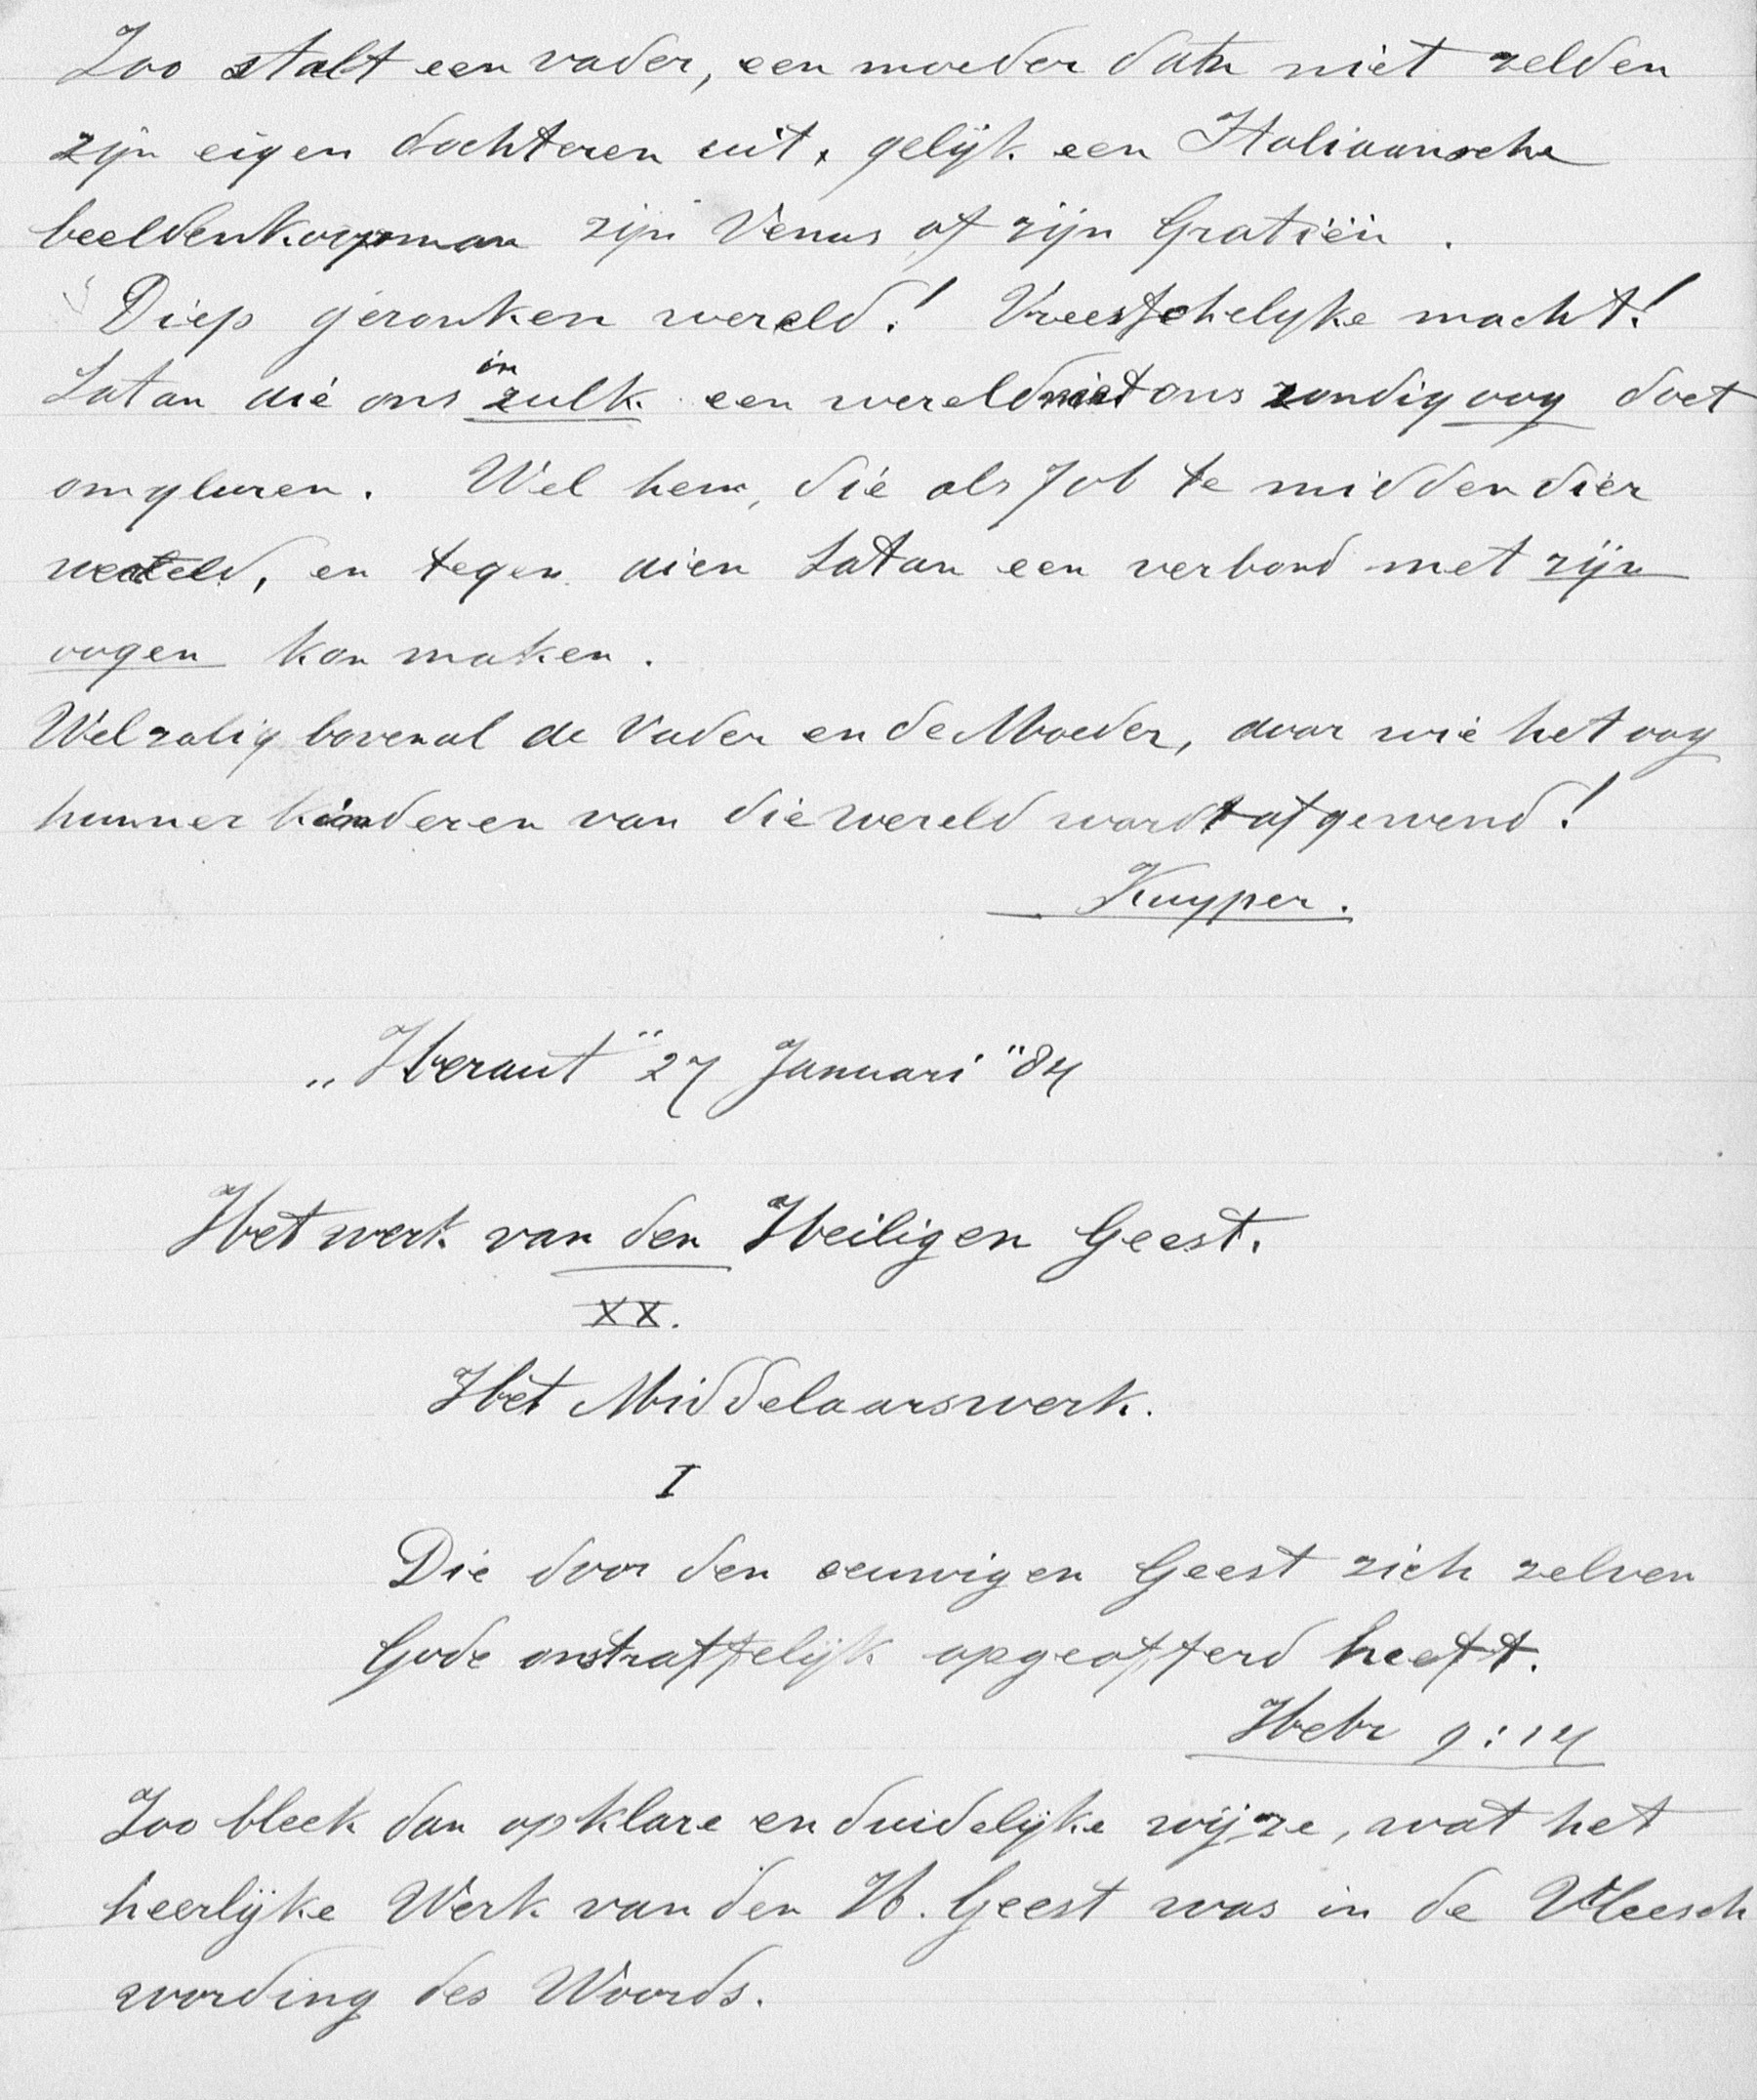 Zoo stalt een vader, een moeder dan niet zelden
zijn eigen dochteren uit, gelijk een Italiaansche
beeldenkoopman zijn Venus of zijn Gratiën.
Diep gezonken wereld! Vreeschelyke macht!
Satan die ons in zulk een wereld met ons zondig oog doet
omgluren. Wel hem, die als Job te midden dier
wereld, en tegen dien Satan een verbond met zijn
oogen kon maken.
Welzalig bovenal de Vader en de Moeder, door wie het oog
hunner kinderen van die wereld wordt afgewend!
Kuyper.
„Heraut" 27 Januari "84
Het werk van den Heiligen Geest.
XX.
Het Middelaarswerk.
I
Die door den eeuwigen Geest zich zelven
Gode onstraffelijk opgeofferd heeft.
Hebr 9:14
Zoo bleek dan op klare en duidelijke wijze, wat het
heerlijke Werk van den H. Geest was in de Vleesch
wording des Woords.